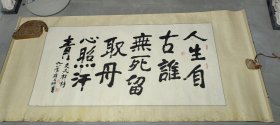 人生自
古誰
無死留
取丹
心照汗
青